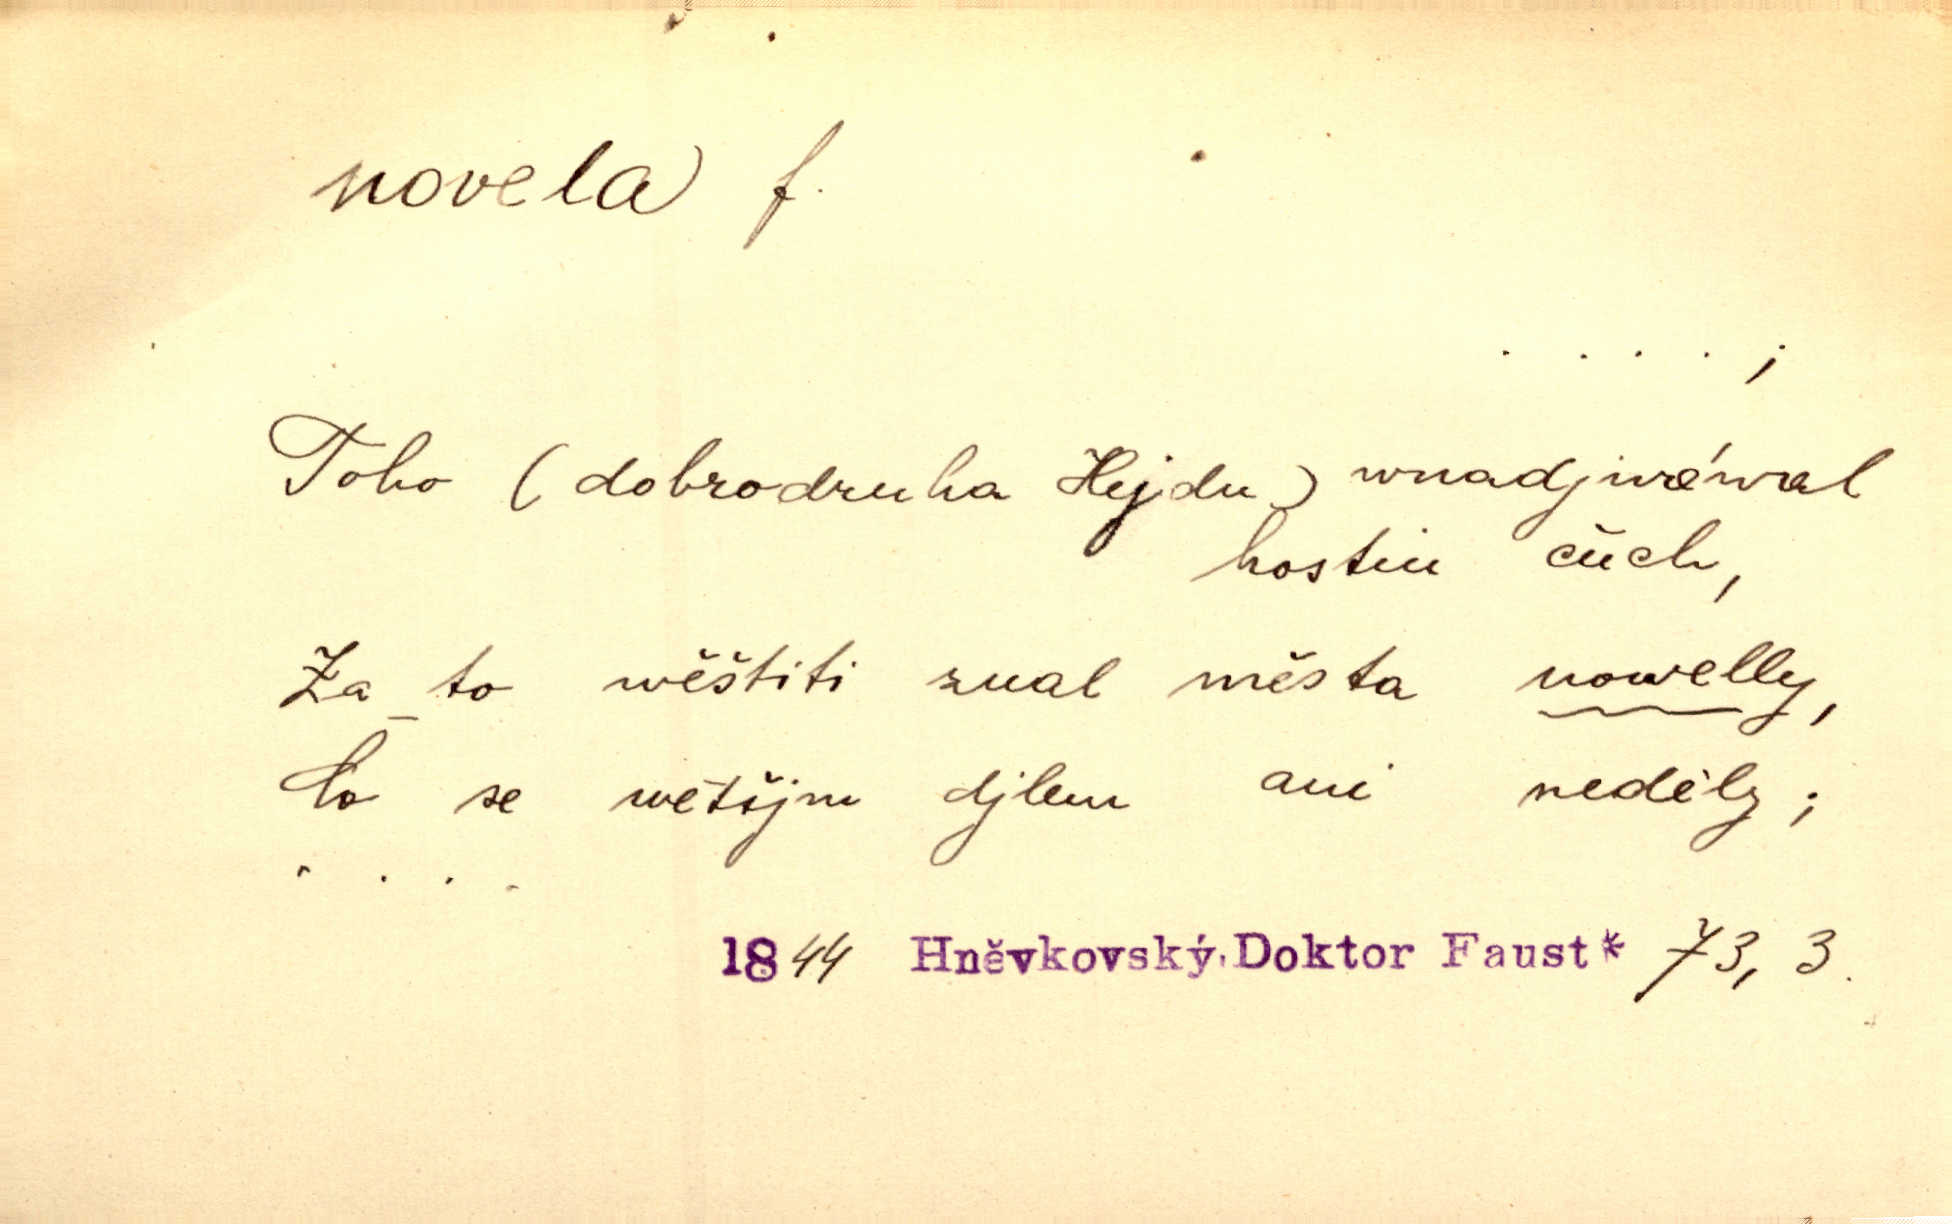 novela f.
. . . . ;
Toho (dobrodruha Hejdu) wnadjwáwal
hostin čich,
Za to wěštiti znal města nowelly,
Co se wětšjm djlem ani neděly;
. . . .
1844 Hněvkovský, Doktor Faust* 73, 3.